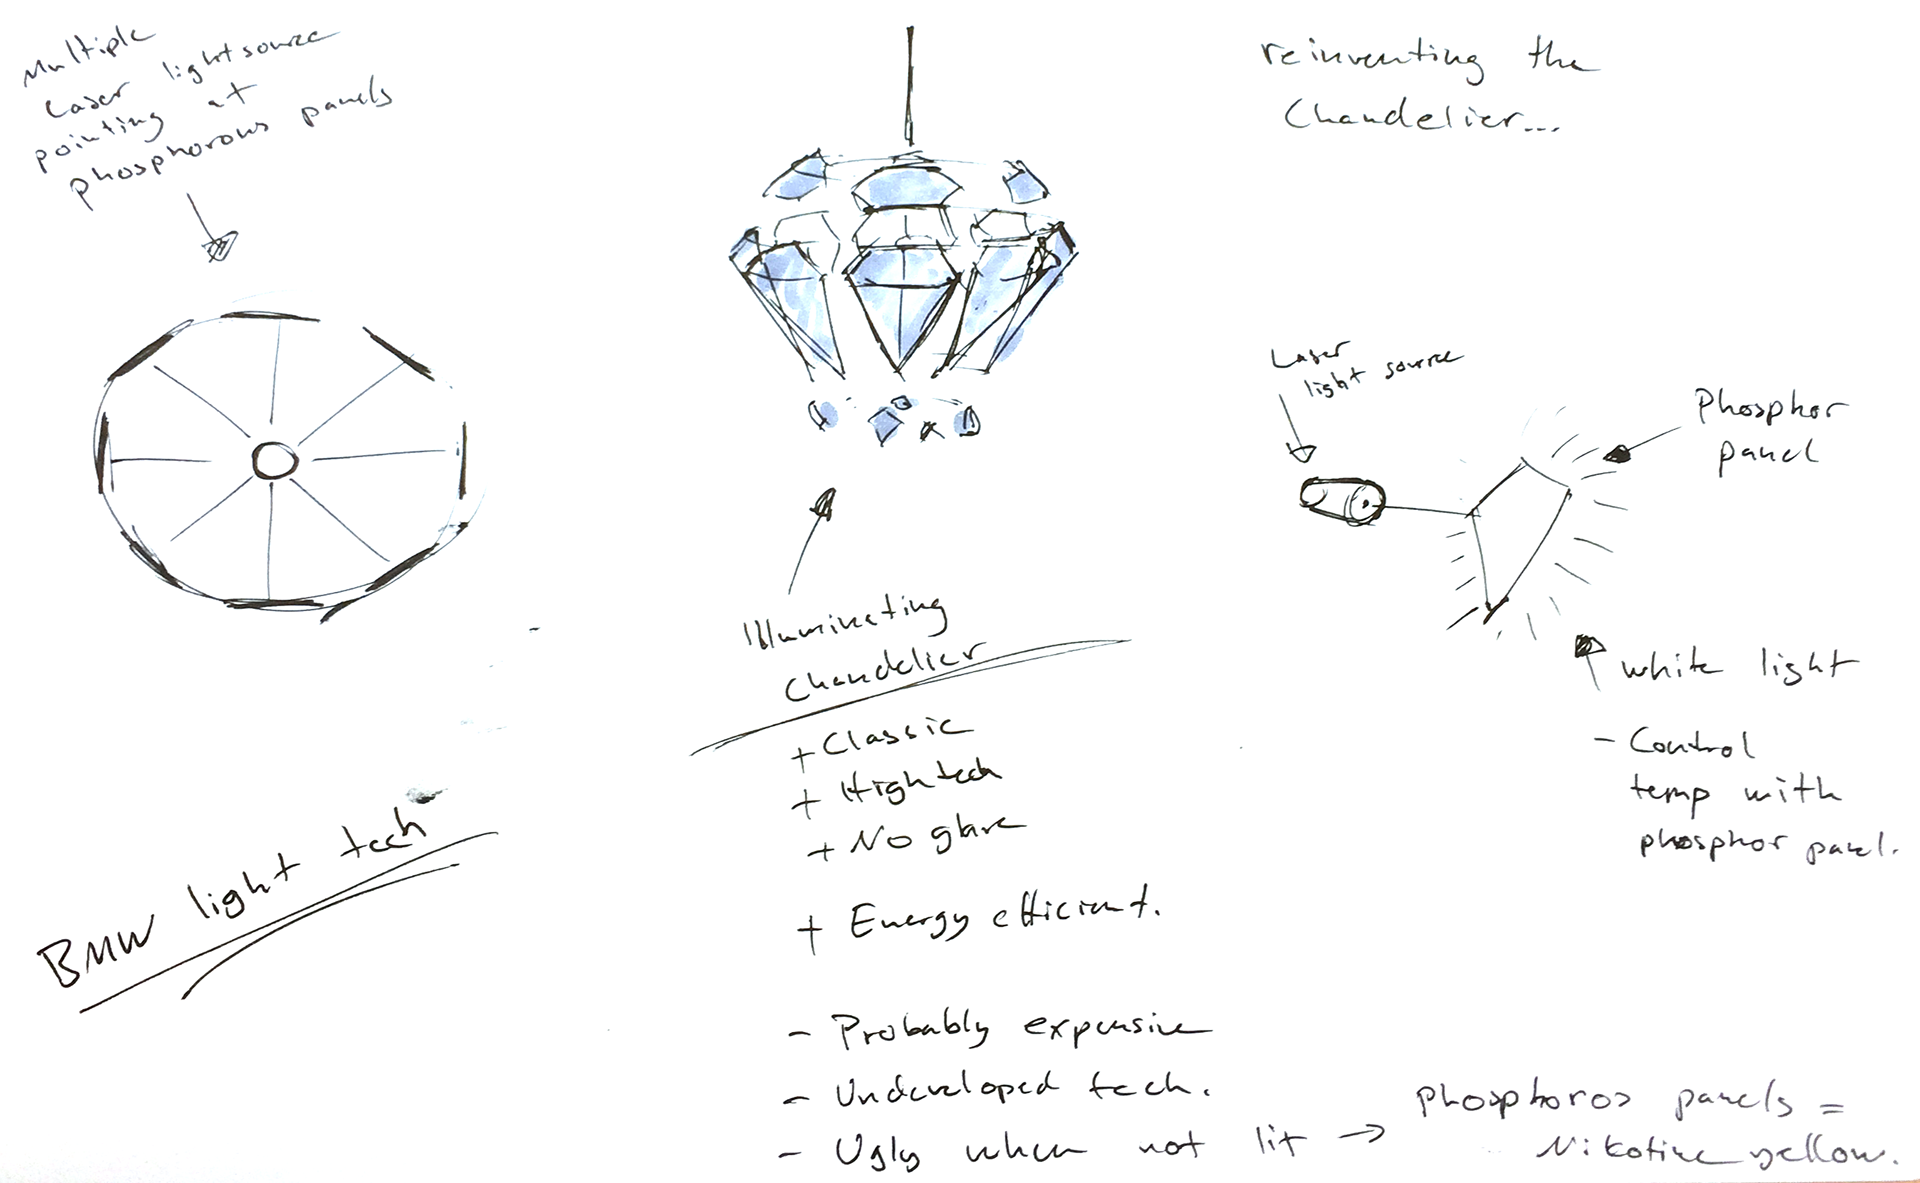 Multiple
Laser lightsource
pointing at
phosphorous panels
reinventing the
Chandelier...
Laser
light source
Phosphor
panel
Illuminating
Chandelier
+ Classic
+ High tech
+ No glare
+ Energy efficient.
- Probably expensive
- Undeveloped tech.
- Ugly when not lit → phosphoros panels =
Nikotine yellow.
white light
- Control
temp with
phosphor panel.
BMW light tech